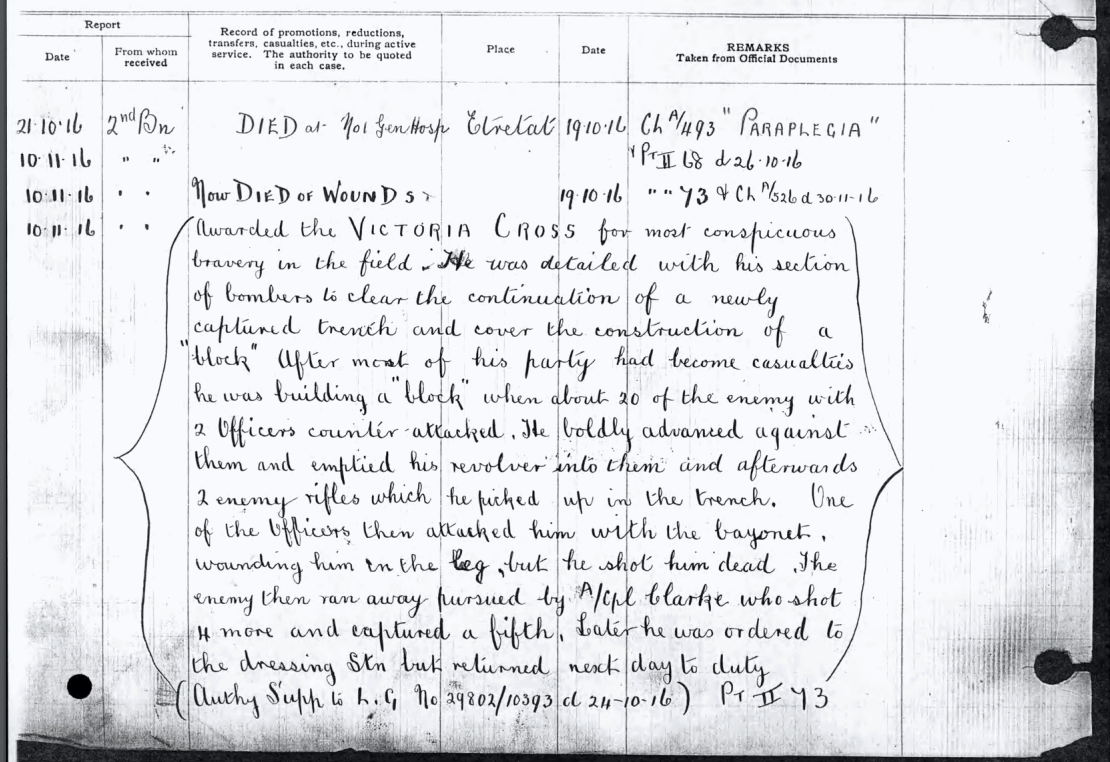 Report
Date
From whom received
Record of promotions, reductions,
transfers, casualties, etc., during active
service. The authority to be quoted
in each case.
Place
Date
REMARKS
Taken from Official Documents
21·10·16 2nd Bn DIED at No1 Gen Hosp Etretat 19·10·16 Ch A/493 "PARAPLEGIA"
10·11·16 " " Pt II 68 d 26·10·16
10·11·16 " " Now DIED OF WOUNDS 19·10·16 " " 73 & Ch A/526 d 30·11·16
10·11·16 " " Awarded the VICTORIA CROSS for most conspicuous
bravery in the field. He was detailed with his section
of bombers to clear the continuation of a newly
captured trench and cover the construction of a
"block" After most of his party had become casualties
he was building a "block" when about 20 of the enemy with
2 Officers counter-attacked. He boldly advanced against
them and emptied his revolver into them and afterwards
2 enemy rifles which he picked up in the trench. One
of the Officers then attacked him with the bayonet,
wounding him in the leg, but he shot him dead. The
enemy then ran away pursued by A/Cpl Clarke who shot
4 more and captured a fifth. Later he was ordered to
the dressing Stn but returned next day to duty
(Authy Supp to L.G, No 29802/10393 d 24-10-16) Pt II 73